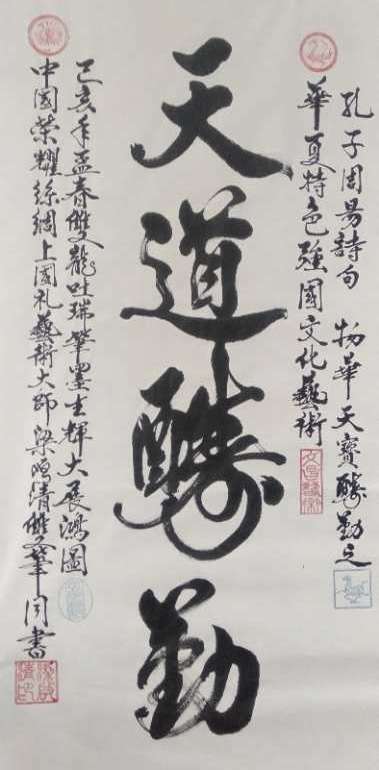 孔子周易詩句 物華天寶酬勤之
華夏特色強國文化藝術
天道酬勤
己亥年孟春雙龍吐瑞筆墨生輝大展鴻圖
中國榮耀絲綢上國礼藝術大師梁鳴清雙筆同書